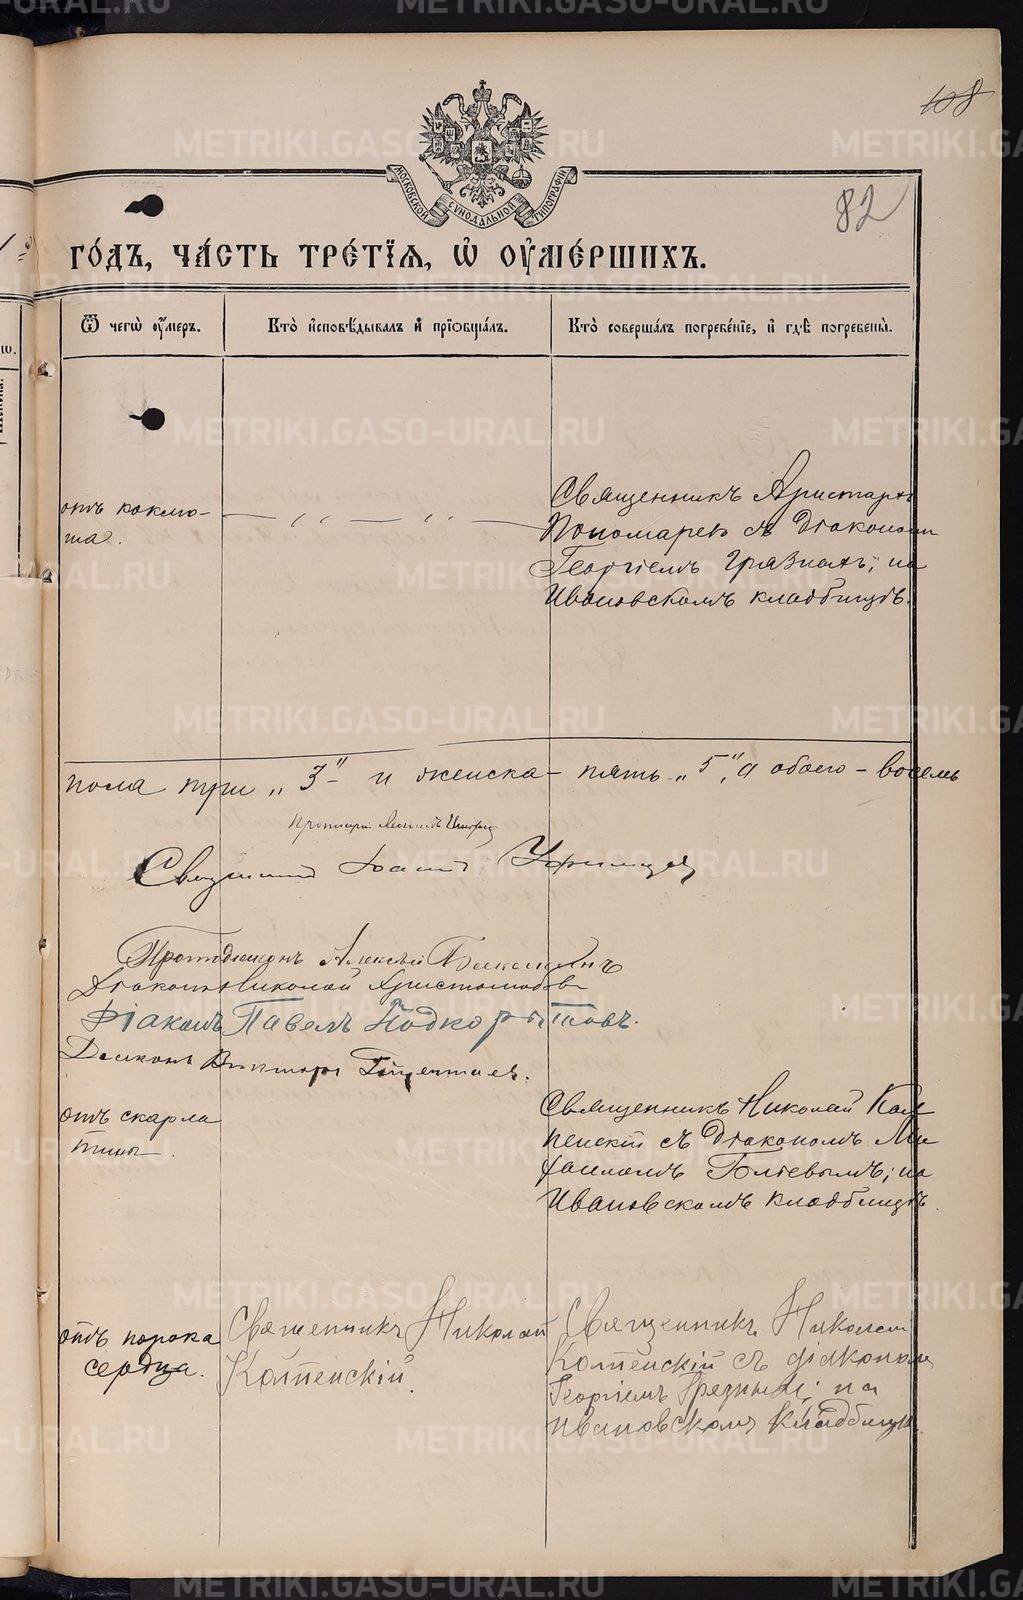 108
82
МОСКОВСКОЙ СѴНОДАЛЬНОЙ ТИПОГРАФІИ
ГО́ДЪ, ЧА́СТЬ ТРЕ́ТІѦ, Ѽ ОУ҆МЕ́РШИХЪ.
Ѿ чегѡ̀ оу҆́меръ.
Кто̀ и҆сповѣ́дывалъ и҆ пріѡбща́лъ.
Кто̀ соверша́лъ погребе́ніе, и҆ гдѣ̀ погребены̀.
отъ коклю-
ша.
— „ — „ —
Священникъ Аристархъ
Пономаревъ съ Діакономъ
Георгіемъ Грязныхъ; на
Ивановскомъ кладбищѣ.
пола три „3“ и женска- пять „5“, а обоего - восемь
Протоіерей
Священникъ Іоаннъ Уфимцев
Протодіаконъ Алексѣй
Діаконъ Николай Аристом
Діаконъ Павелъ Подкорытовъ.
Диаконъ Викторъ
отъ скарла
тины.
Священникъ Николай Кат
ненскій съ Діакономъ Ми
хаиломъ Болтевымъ; на
Ивановскомъ кладбищѣ
отъ порока
сердца.
Священникъ Николай
Катненскій
Священникъ Николай
Катненскій съ діакономъ
Георгіемъ Грязных; на
Ивановскомъ кладбищѣ.
METRIKI.GASO-URAL.RU